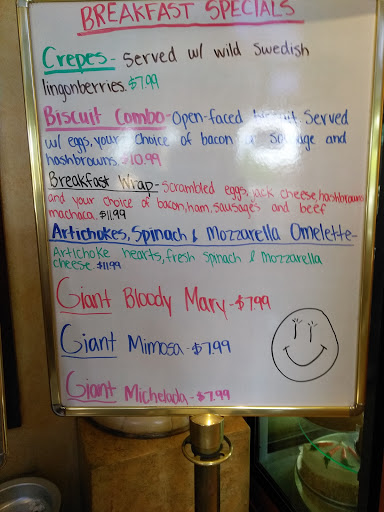 BREAKFAST SPECIALS
Crepes - Served w/ wild Swedish
lingonberries. $7.99
Biscuit Combo - Open-faced biscuit, Served
w/ eggs, your choice of bacon or sausage and
hashbrowns. $10.99
Breakfast Wrap - Scrambled eggs, jack cheese, hashbrowns
and your choice of bacon, ham, sausages and beef
machaca. $11.99
Artichokes, Spinach & Mozzarella Omelette -
Artichoke hearts, fresh spinach & mozzarella
cheese $11.99
Giant Bloody Mary - $7.99
Giant Mimosa - $7.99
Giant Michelada - $7.99